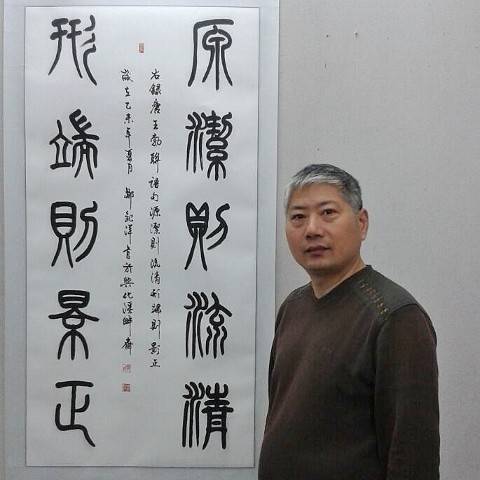 原潔則流清
右錄唐王勃聯語句源潔則流清形端則影正
歲在乙未年夏月 鄭永洋書於興化畔齋
形端則景正